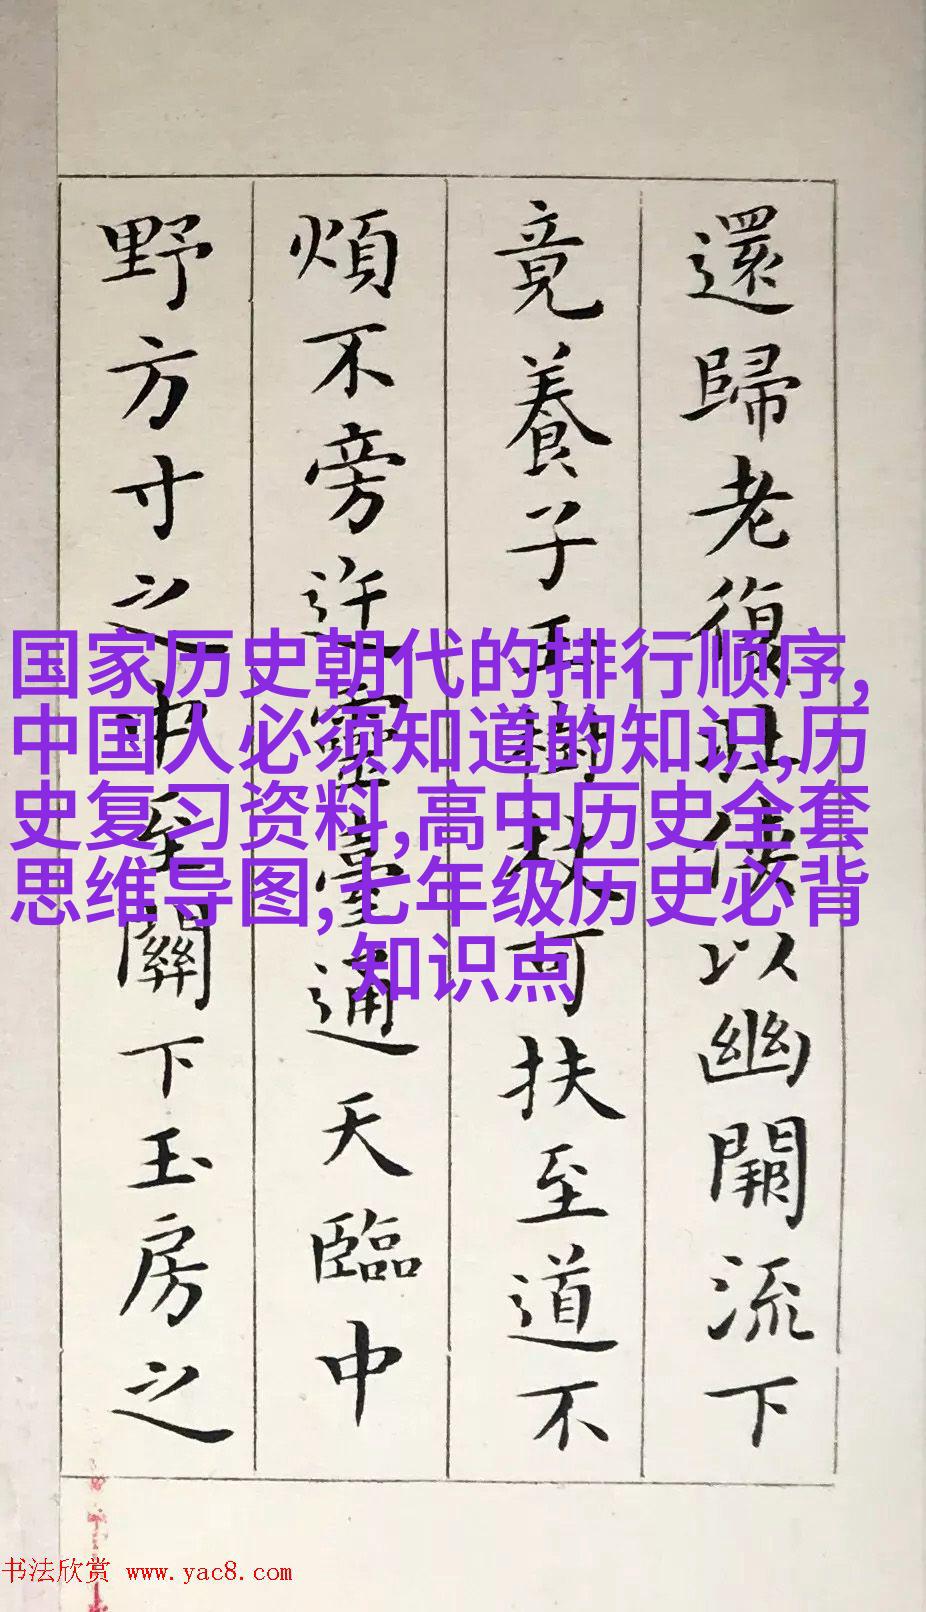 還歸老復壯俠以幽闕流下
竟養子玉樹杖可扶至道不
煩不旁迕靈臺通天臨中
野方寸之中至關下玉房之
国家历史朝代的排行顺序,
中国人必须知道的知识,历
史复习资料,高中历史全套
思维导图,七年级历史必背
知识点
书法欣赏 www.yac8.com